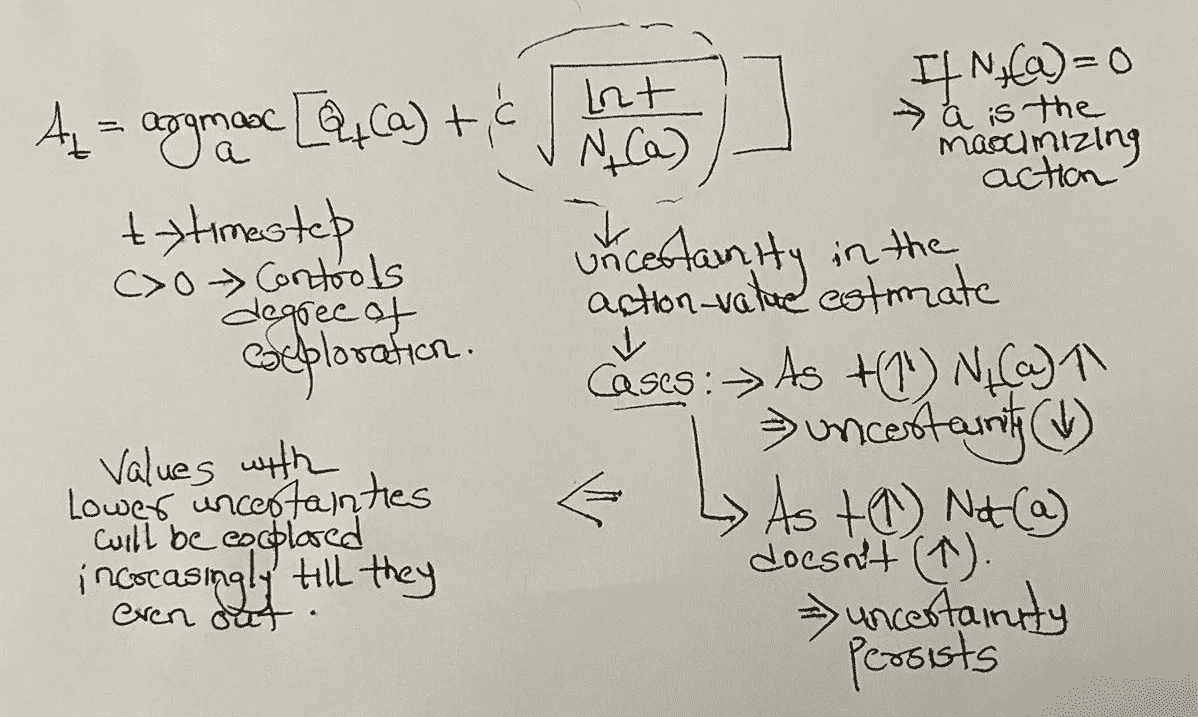 A_t = argmax_a [Q_t(a) + c √(ln t / N_t(a))]
If N_t(a) = 0
→ a is the
maximizing
action
t → timestep
c > 0 → Controls
degree of
exploration.
↓
uncertainity in the
action-value estimate
↓
Cases: → As t(↑) N_t(a) ↑
⇒ uncertainity (↓)
↳ As t(↑) Nt(a)
doesn't (↑).
⇒ uncertainity
persists
⇐
Values with
Lower uncertainties
will be explored
increasingly till they
even out.